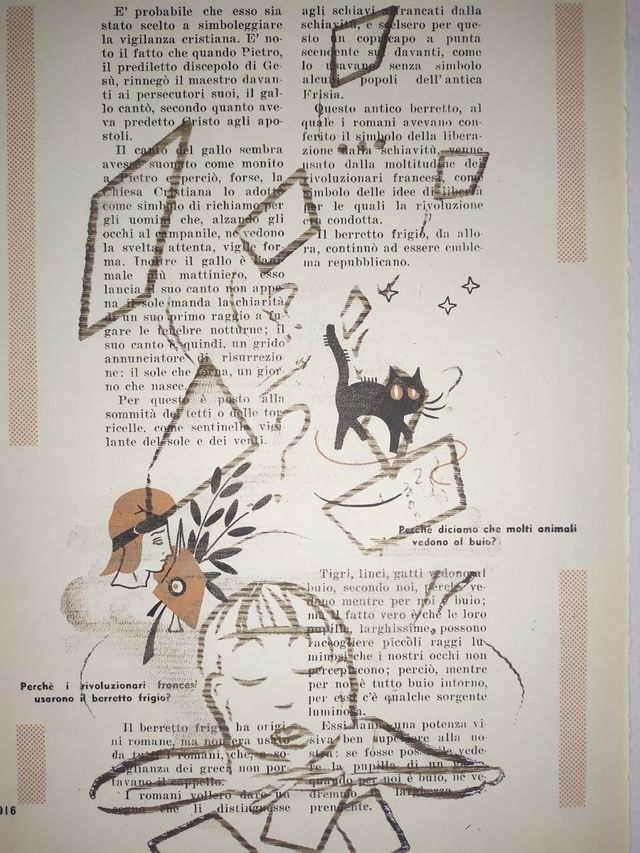 E' probabile che esso sia
stato scelto a simboleggiare
la vigilanza cristiana. E' no-
to il fatto che quando Pietro,
il prediletto discepolo di Ge-
sù, rinnegò il maestro davan-
ti ai persecutori suoi, il gal-
lo cantò, secondo quanto ave-
va predetto Cristo agli apo-
stoli.
Il canto del gallo sembra
avesse suonato come monito
a Pietro e perciò, forse, la
Chiesa Cristiana lo adottò
come simbolo di richiamo per
gli uomini che, alzando gli
occhi al campanile, ne vedono
la svelta, attenta, vigile for-
ma. Inoltre il gallo è l'ani-
male più mattiniero, esso
lancia il suo canto non appe-
na il sole manda la chiarità
di un suo primo raggio a fu-
gare le tenebre notturne; il
suo canto è, quindi, un grido
annunciatore di risurrezio-
ne: il sole che torna, un gior-
no che nasce.
Per questo è posto alla
sommità dei tetti o delle tor-
ricelle, come sentinella vigi-
lante del sole e dei venti.
Perchè i rivoluzionari francesi
usarono il berretto frigio?
Il berretto frigio ha origi-
ni romane, ma non era usato
da tutti i romani, che, a so-
miglianza dei greci non por-
tavano il cappello.
I romani vollero dare un
segno che li distinguesse
agli schiavi affrancati dalla
schiavitù, e scelsero per que-
sto un copricapo a punta
scendente sul davanti, come
lo usavano senza simbolo
alcuni popoli dell'antica
Frisia.
Questo antico berretto, al
quale i romani avevano con-
ferito il simbolo della libera-
zione dalla schiavitù, venne
usato dalla moltitudine dei
rivoluzionari francesi, come
simbolo delle idee di libertà
per le quali la rivoluzione
era condotta.
Il berretto frigio, da allo-
ra, continuò ad essere emble-
ma repubblicano.
Perchè diciamo che molti animali
vedono al buio?
Tigri, linci, gatti vedono al
buio, secondo noi, perchè ve-
dono mentre per noi è buio;
ma il fatto vero è che le loro
pupille, larghissime, possono
raccogliere piccoli raggi lu-
minosi che i nostri occhi non
percepiscono; perciò, mentre
per noi è tutto buio intorno,
per essi c'è qualche sorgente
luminosa.
Essi hanno una potenza vi-
siva ben superiore alla no-
stra: se fosse possibile vede-
re la pupilla di un
quando per noi è buio, ne ve-
dremmo la larghezza
prendente.
916